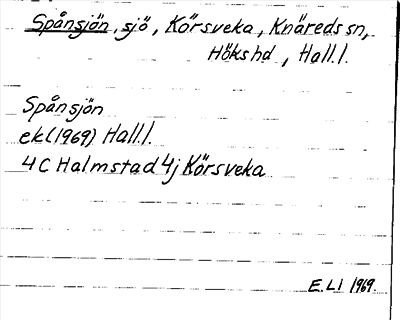 Spånsjön, sjö, Körsveka, Knäreds sn,
Höks hd, Hall.l.
Spånsjön
ek(1969) Hall.l.
4C Halmstad 4j Körsveka
E.LI 1969